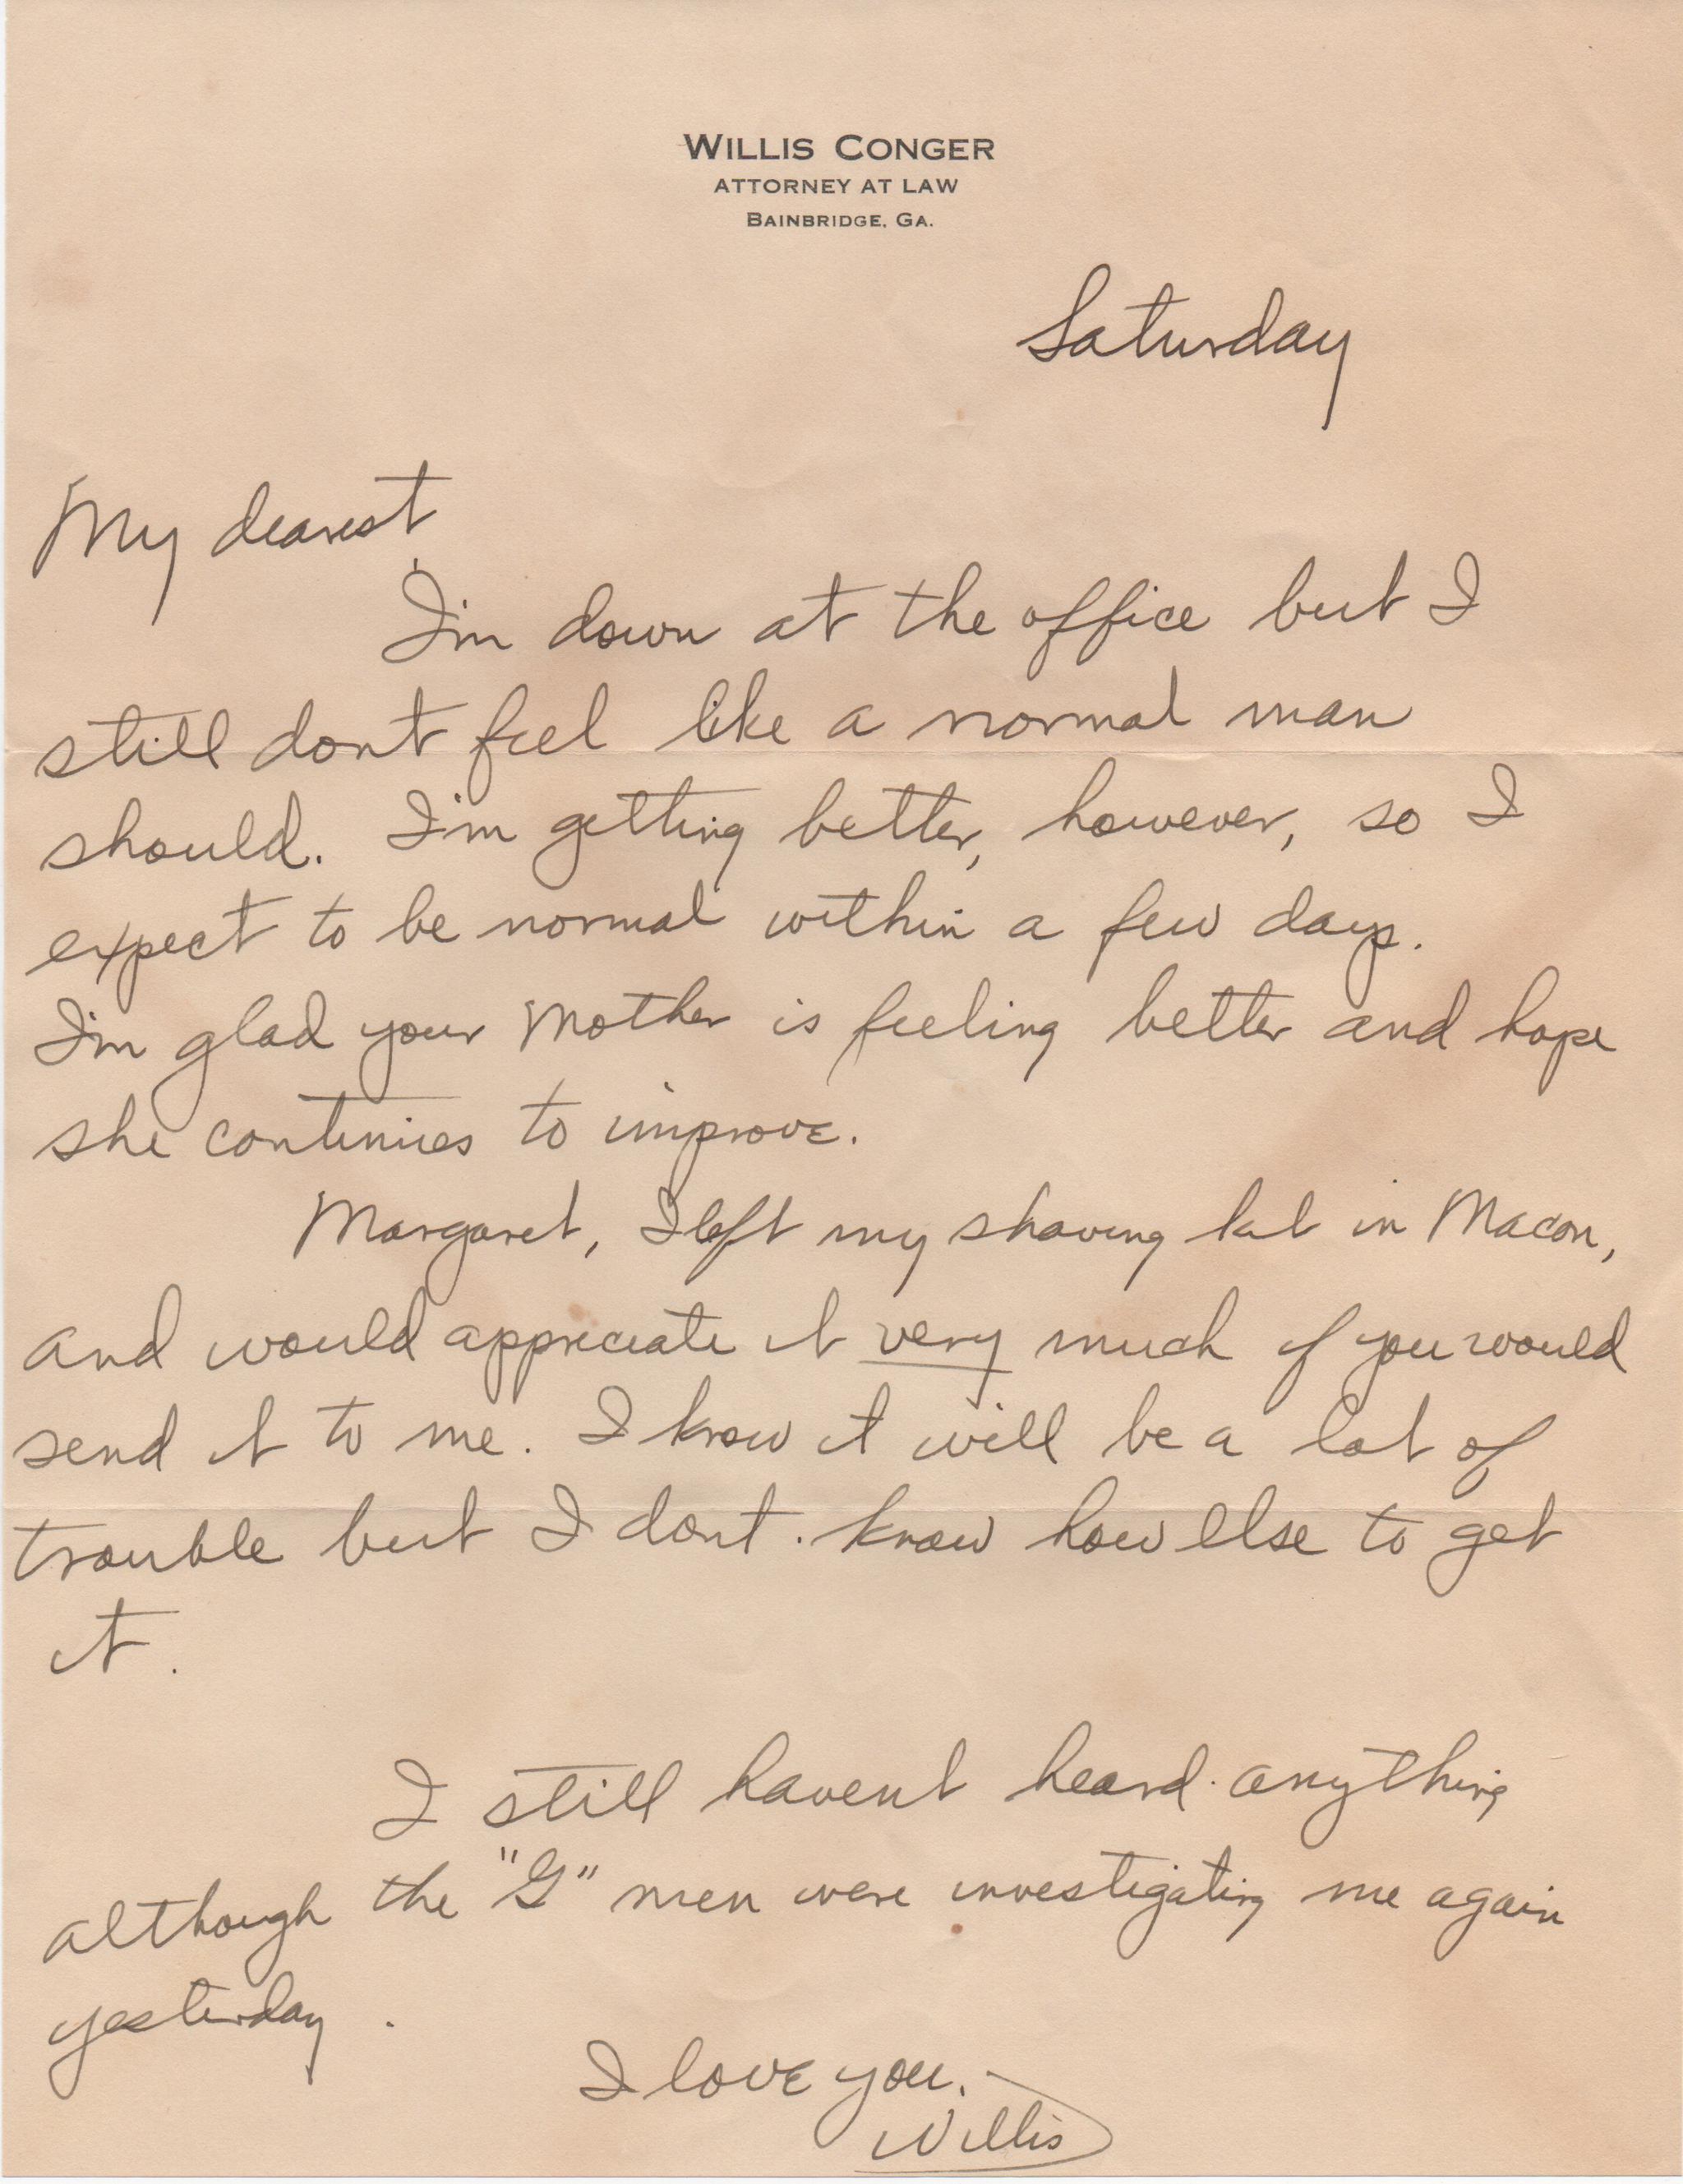 WILLIS CONGER
ATTORNEY AT LAW
BAINBRIDGE, GA.
Saturday
My dearest,
I'm down at the office but I
still dont feel like a normal man
should. I'm getting better, however, so I
expect to be normal within a few days.
I'm glad your Mother is feeling better and hope
she continues to improve.
Margaret, I left my shaving kit in Macon,
and would appreciate it very much if you would
send it to me. I know it will be a lot of
trouble but I dont know how else to get
it.
I still havent heard anything
although the "G" men were investigating me again
yesterday.
I love you.
Willis